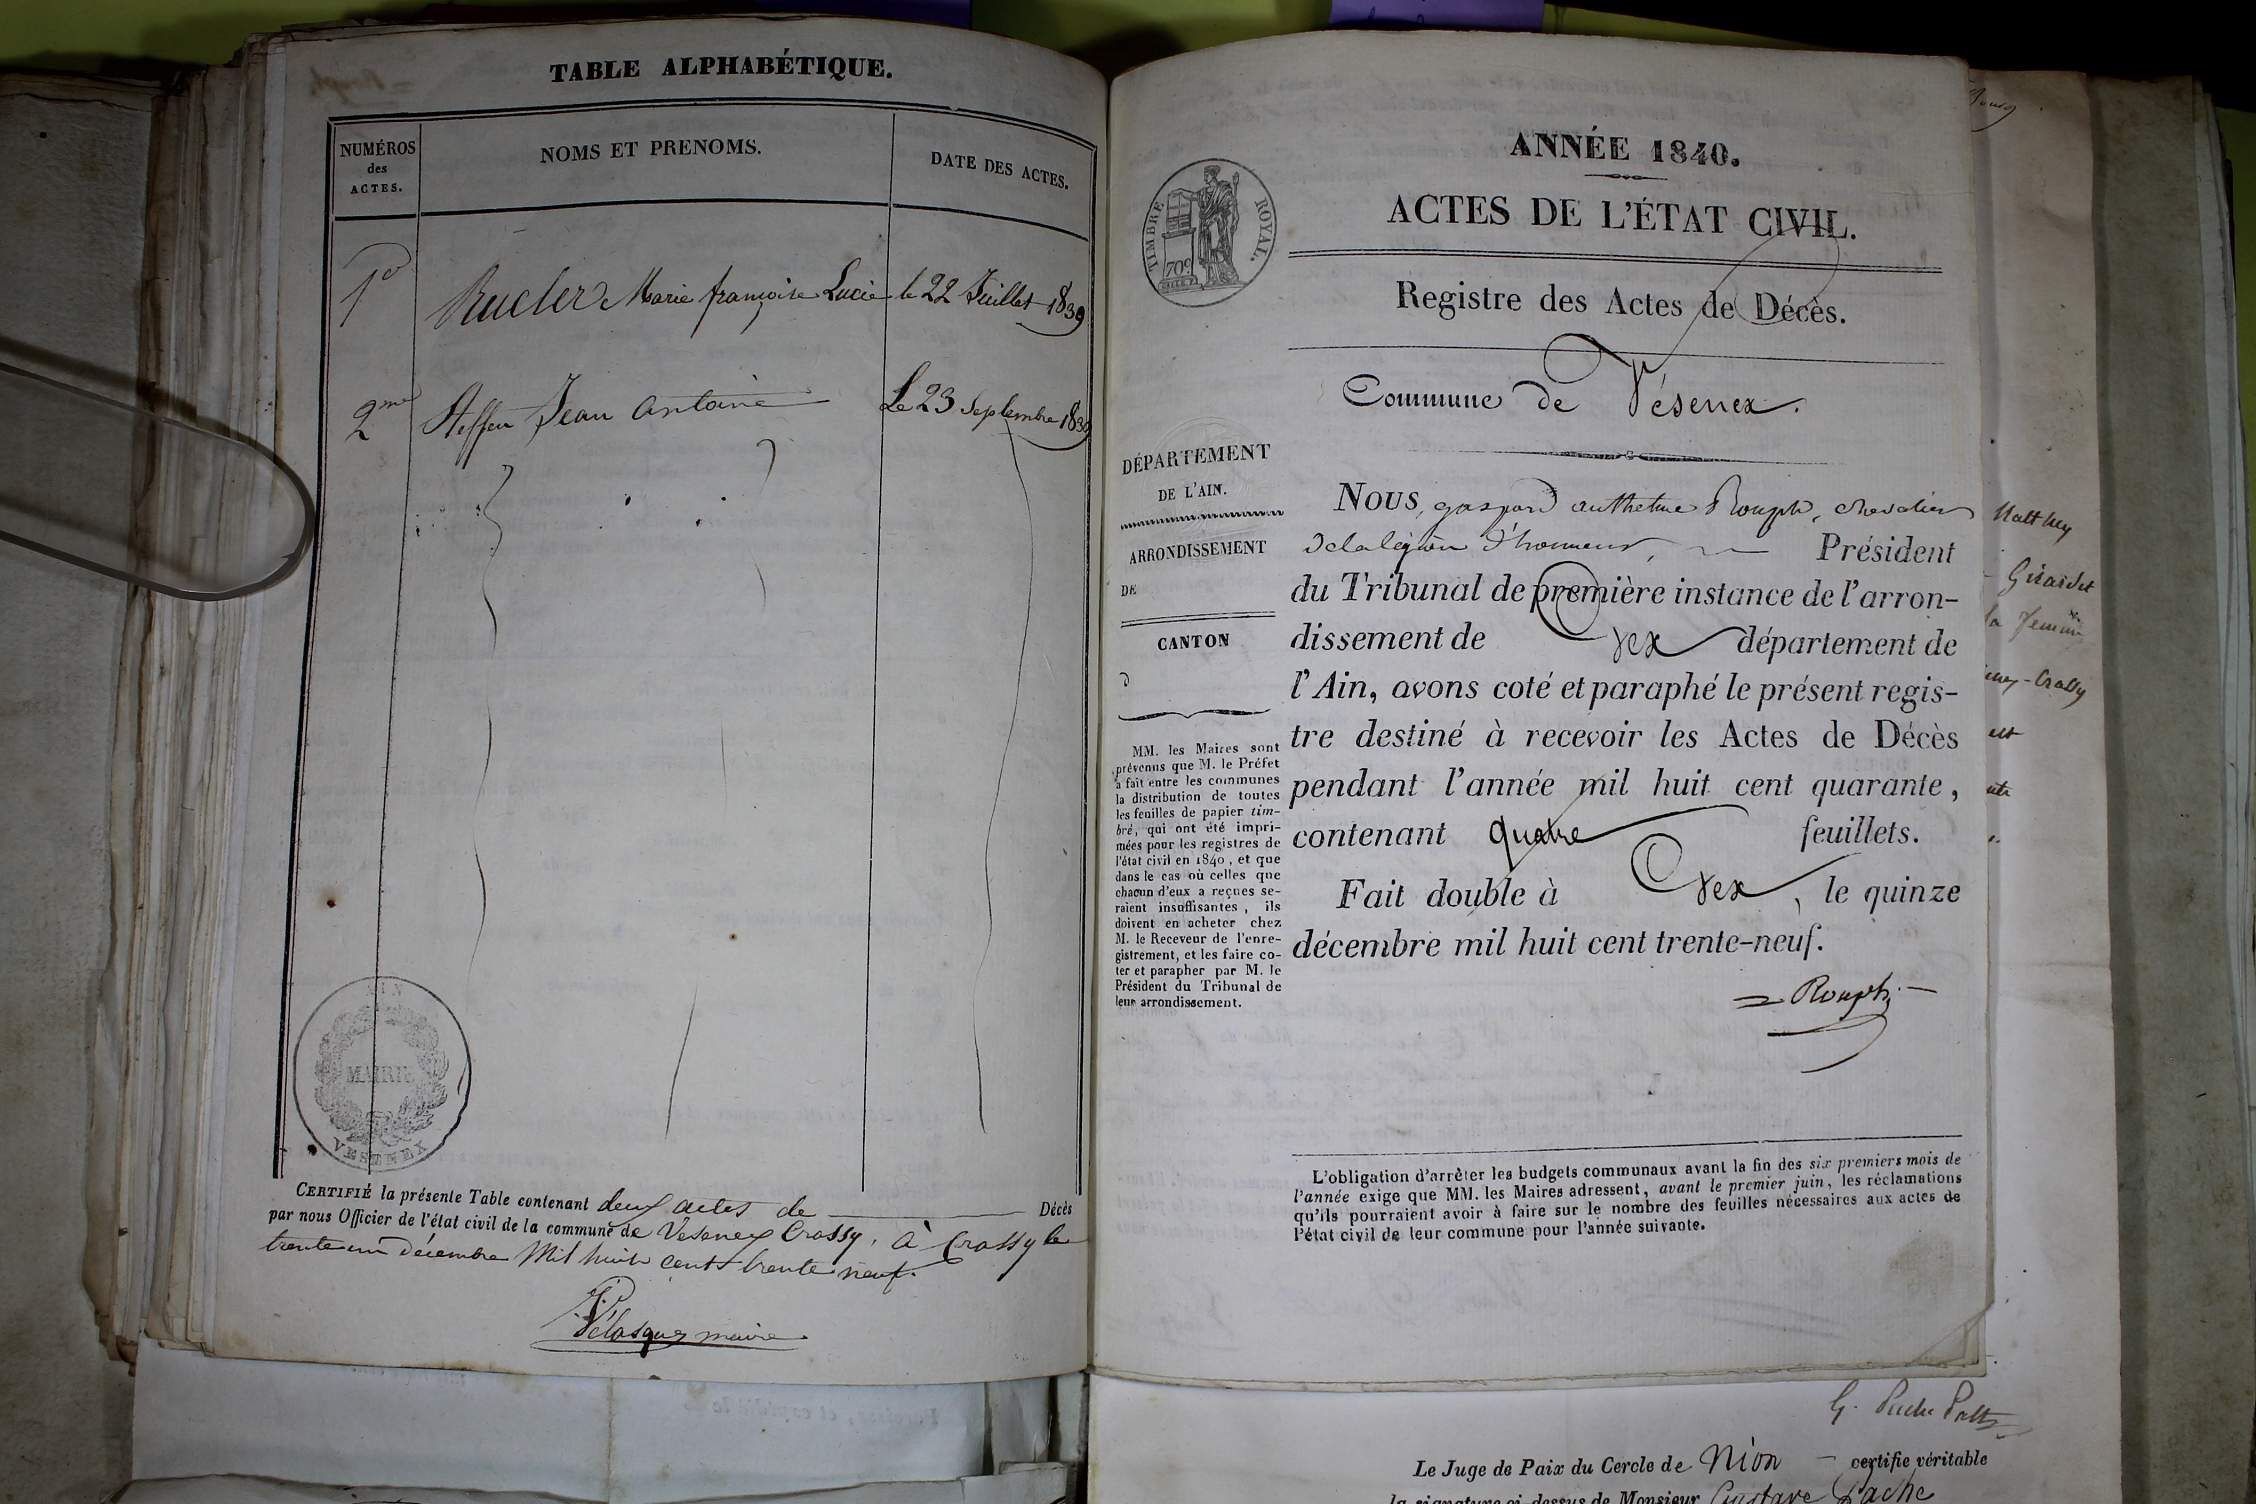 TABLE ALPHABÉTIQUE.
NUMÉROS
des
ACTES.
NOMS ET PRENOMS.
DATE DES ACTES.
1o Rucler Marie françoise Lucie le 22 Juillet 1839
2me Steffen Jean Antoine Le 23 Septembre 1839
AIN
MAIRIE
VESENEX
CERTIFIÉ la présente Table contenant deux actes de Décès
par nous Officier de l'état civil de la commune de Vesenex Crassy, à Crassy le
trente un décembre Mil huit cent trente neuf.
Velasquez maire
ANNÉE 1840.
ACTES DE L'ÉTAT CIVIL.
TIMBRE ROYAL.
70c
Registre des Actes de Décès.
Commune de Vésenex.
DÉPARTEMENT
DE L'AIN.
ARRONDISSEMENT
DE
CANTON
d
MM. les Maires sont
prévenus que M. le Préfet
a fait entre les communes
la distribution de toutes
les feuilles de papier tim-
bré, qui ont été impri-
mées pour les registres de
l'état civil en 1840, et que
dans le cas où celles que
chacun d'eux a reçues se-
raient insuffisantes, ils
doivent en acheter chez
M. le Receveur de l'enre-
gistrement, et les faire co-
ter et parapher par M. le
Président du Tribunal de
leur arrondissement.
Nous, gaspard anthelme Rouph, chevalier
de la légion d'honneur, Président
du Tribunal de première instance de l'arron-
dissement de Gex département de
l'Ain, avons coté et paraphé le présent regis-
tre destiné à recevoir les Actes de Décès
pendant l'année mil huit cent quarante,
contenant quatre feuillets.
Fait double à Gex, le quinze
décembre mil huit cent trente-neuf.
Rouph
L'obligation d'arrêter les budgets communaux avant la fin des six premiers mois de
l'année exige que MM. les Maires adressent, avant le premier juin, les réclamations
qu'ils pourraient avoir à faire sur le nombre des feuilles nécessaires aux actes de
l'état civil de leur commune pour l'année suivante.
Matthey
Girardet
la
Crassy
est
G.
Le Juge de Paix du Cercle de Nion certifie véritable
la signature ci-dessus de Monsieur Gustave Pache